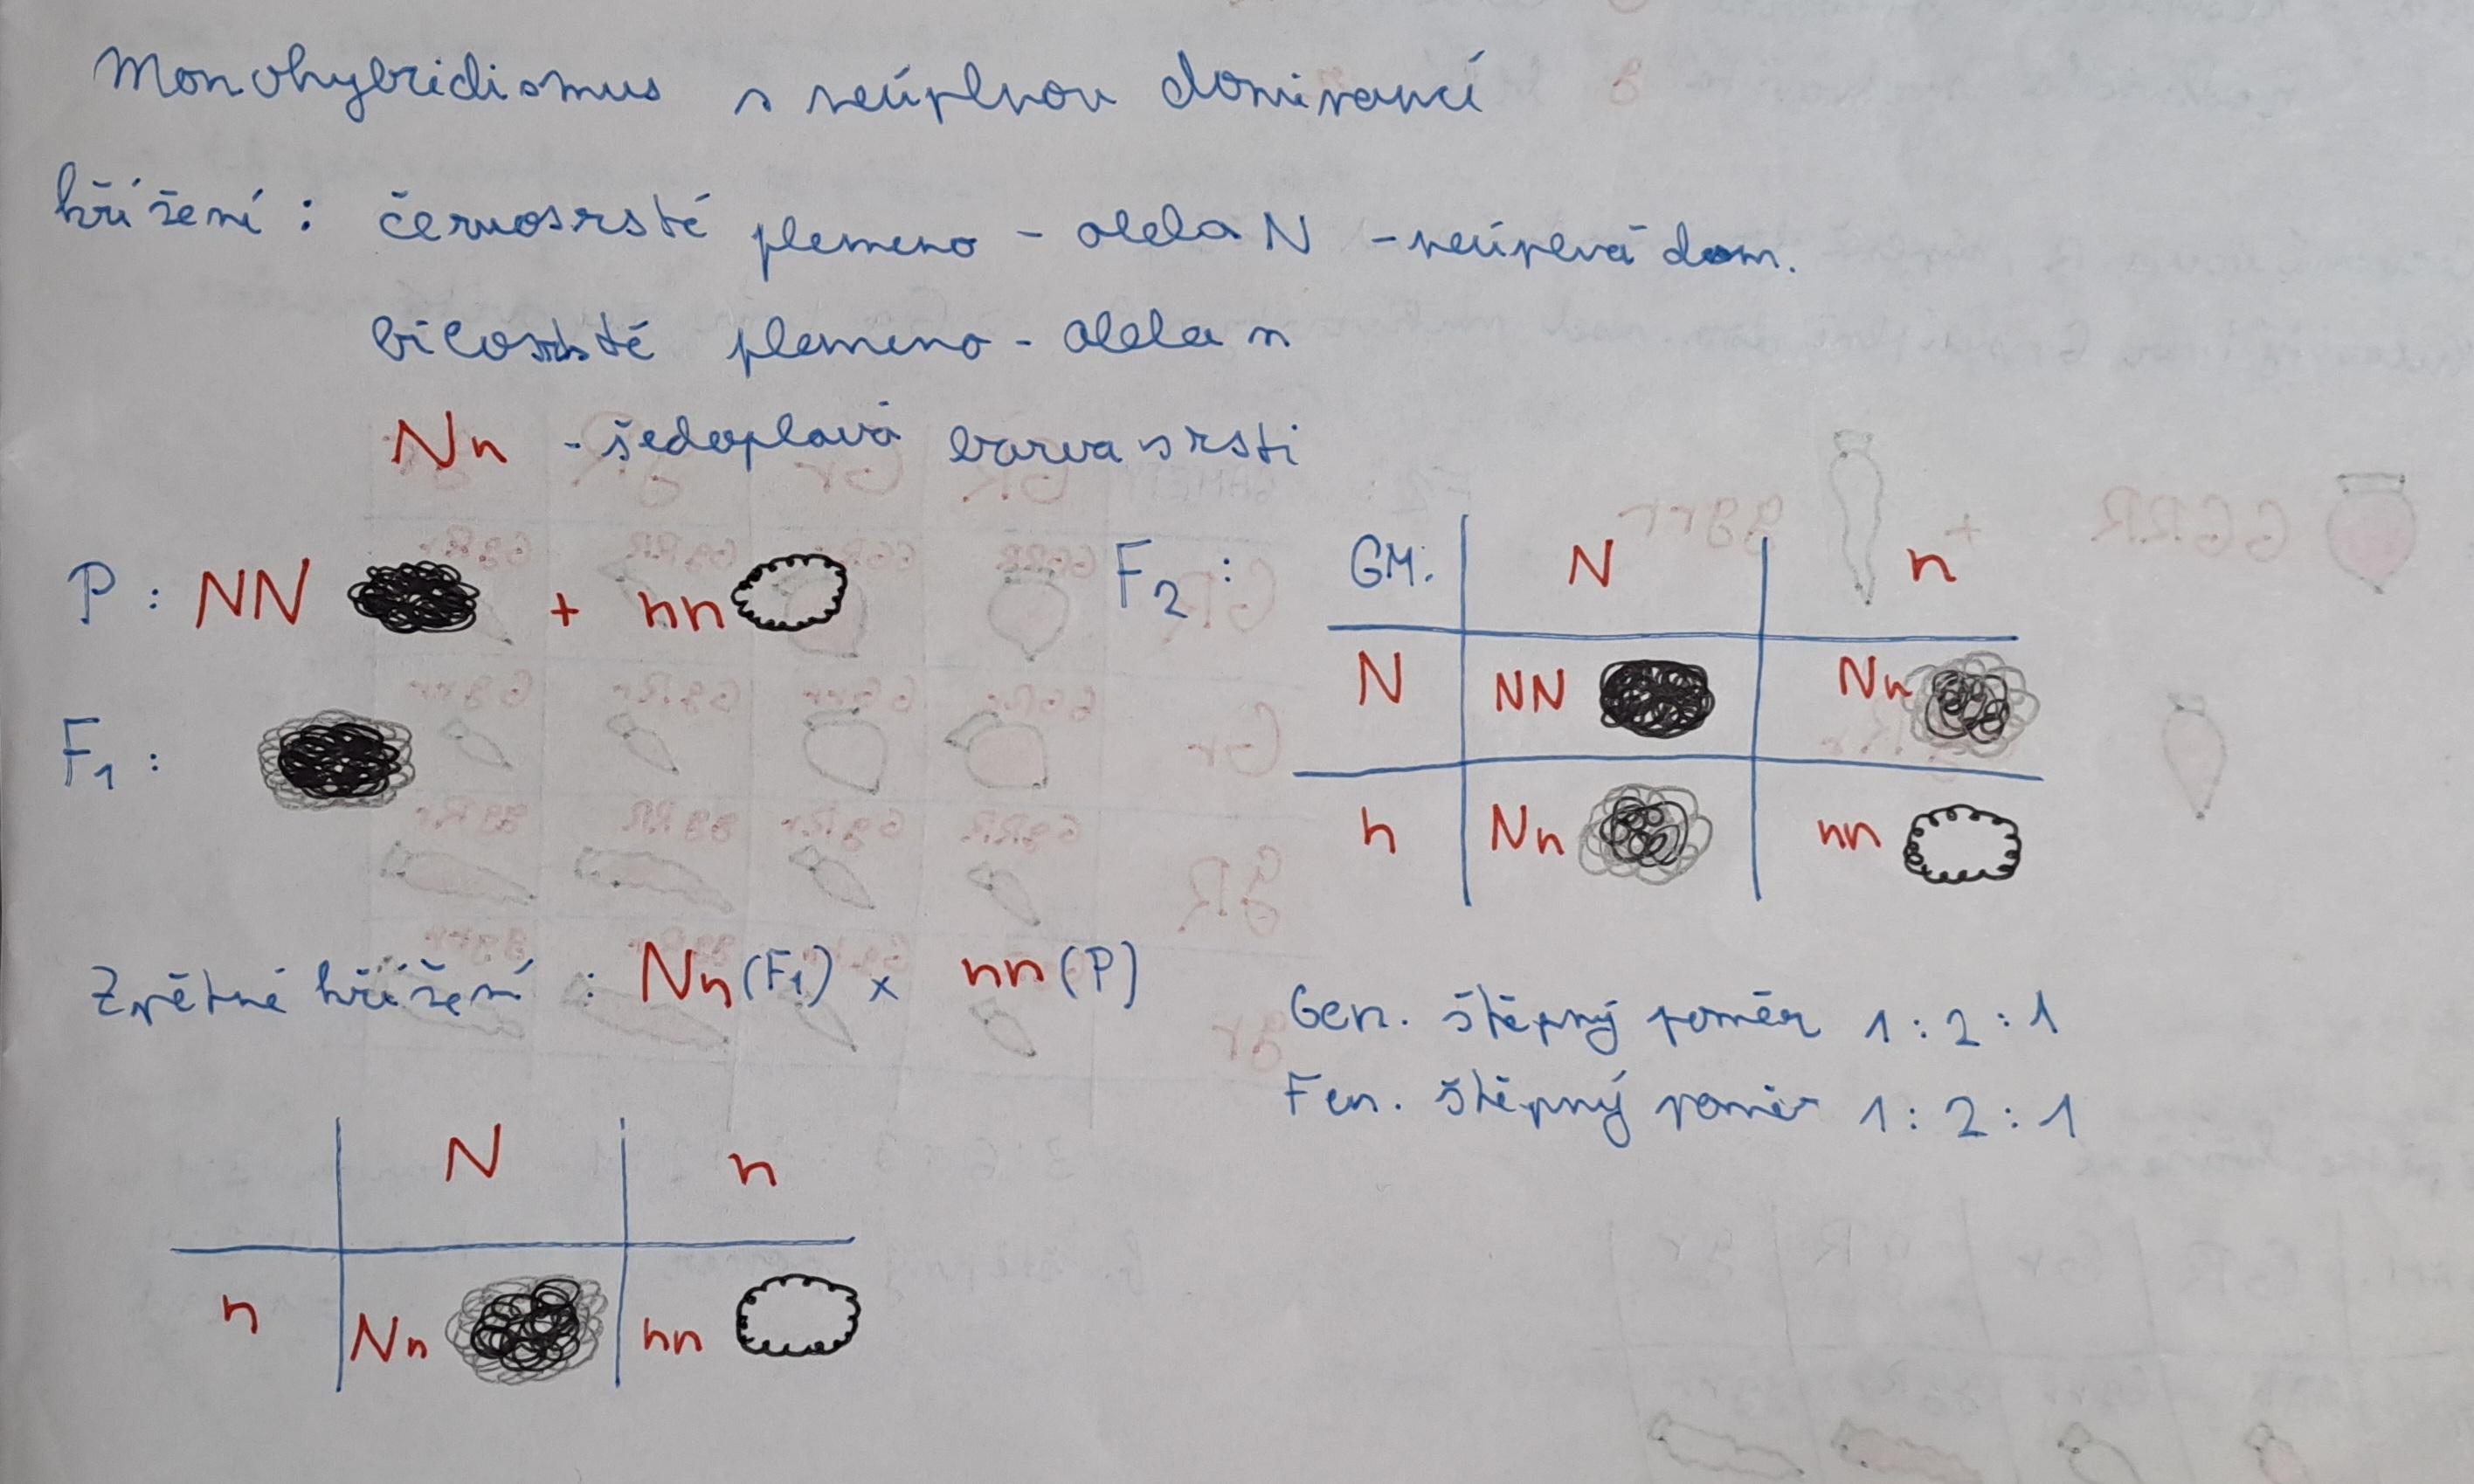 Monohybridismus s neúplnou dominancí
křížení : černosrsté plemeno - alela N - neúplná dom.
bílosrsté plemeno - alela n
Nn - šedoplavá barva srsti
P : NN + nn
F1 :
F2 :
GM. N n
N NN Nn
n Nn nn
Zpětné křížení : Nn (F1) x nn (P)
N n
n Nn nn
Gen. štěpný poměr 1 : 2 : 1
Fen. štěpný poměr 1 : 2 : 1